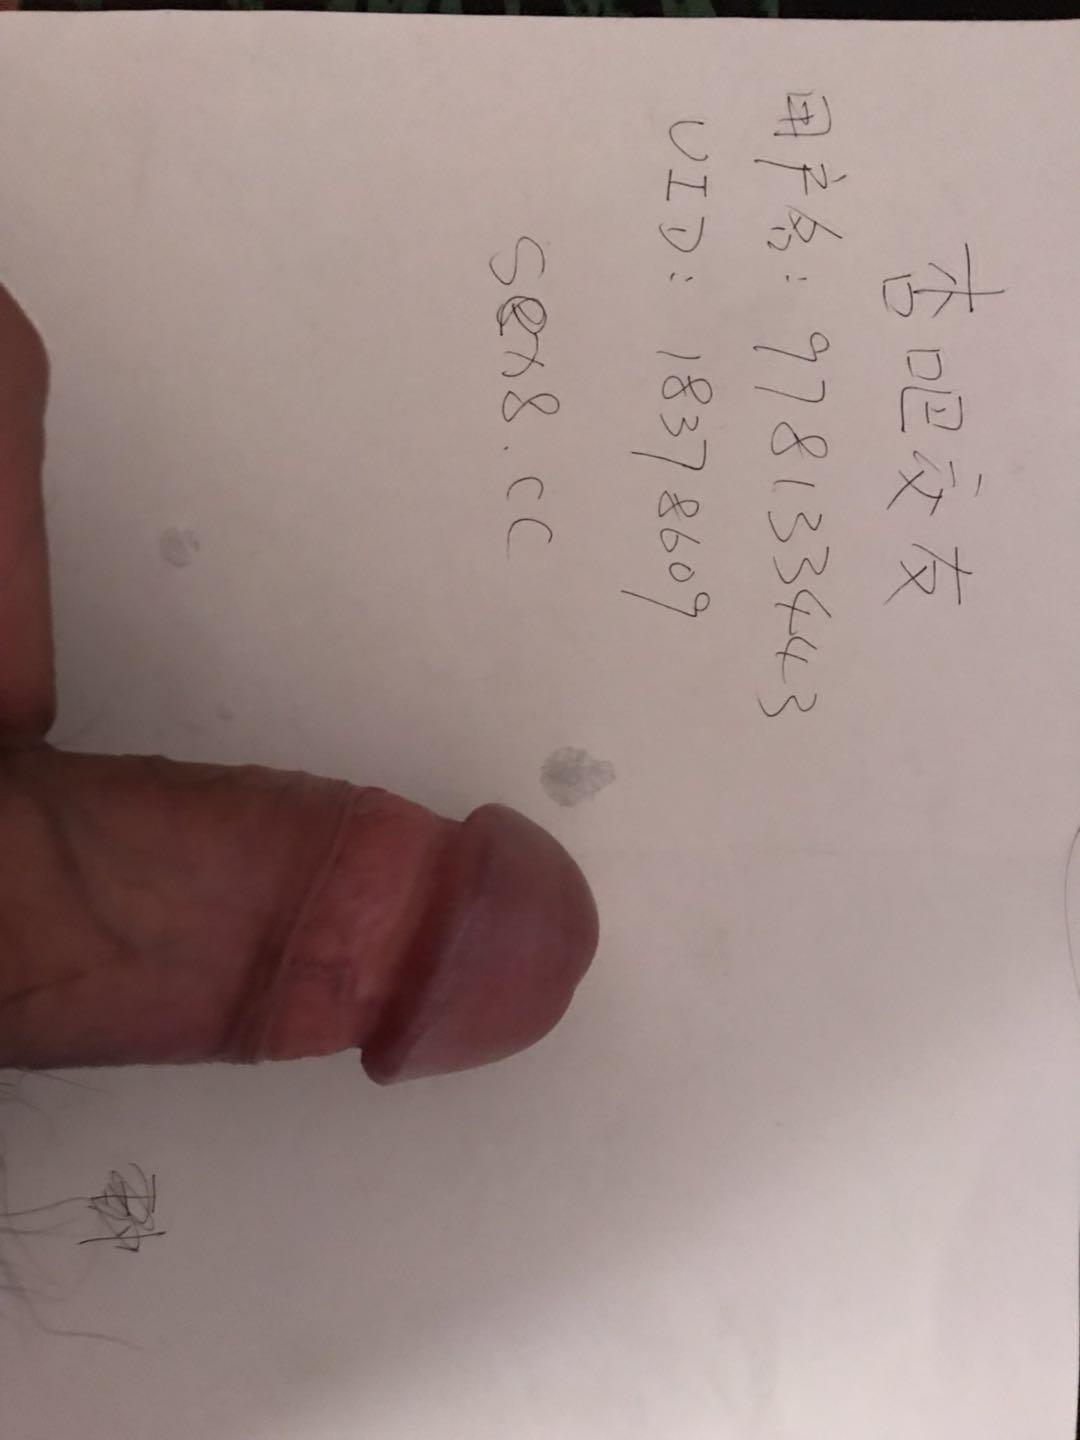 杏吧交友
用户名：978133443
UID：18378609
sex8.cc